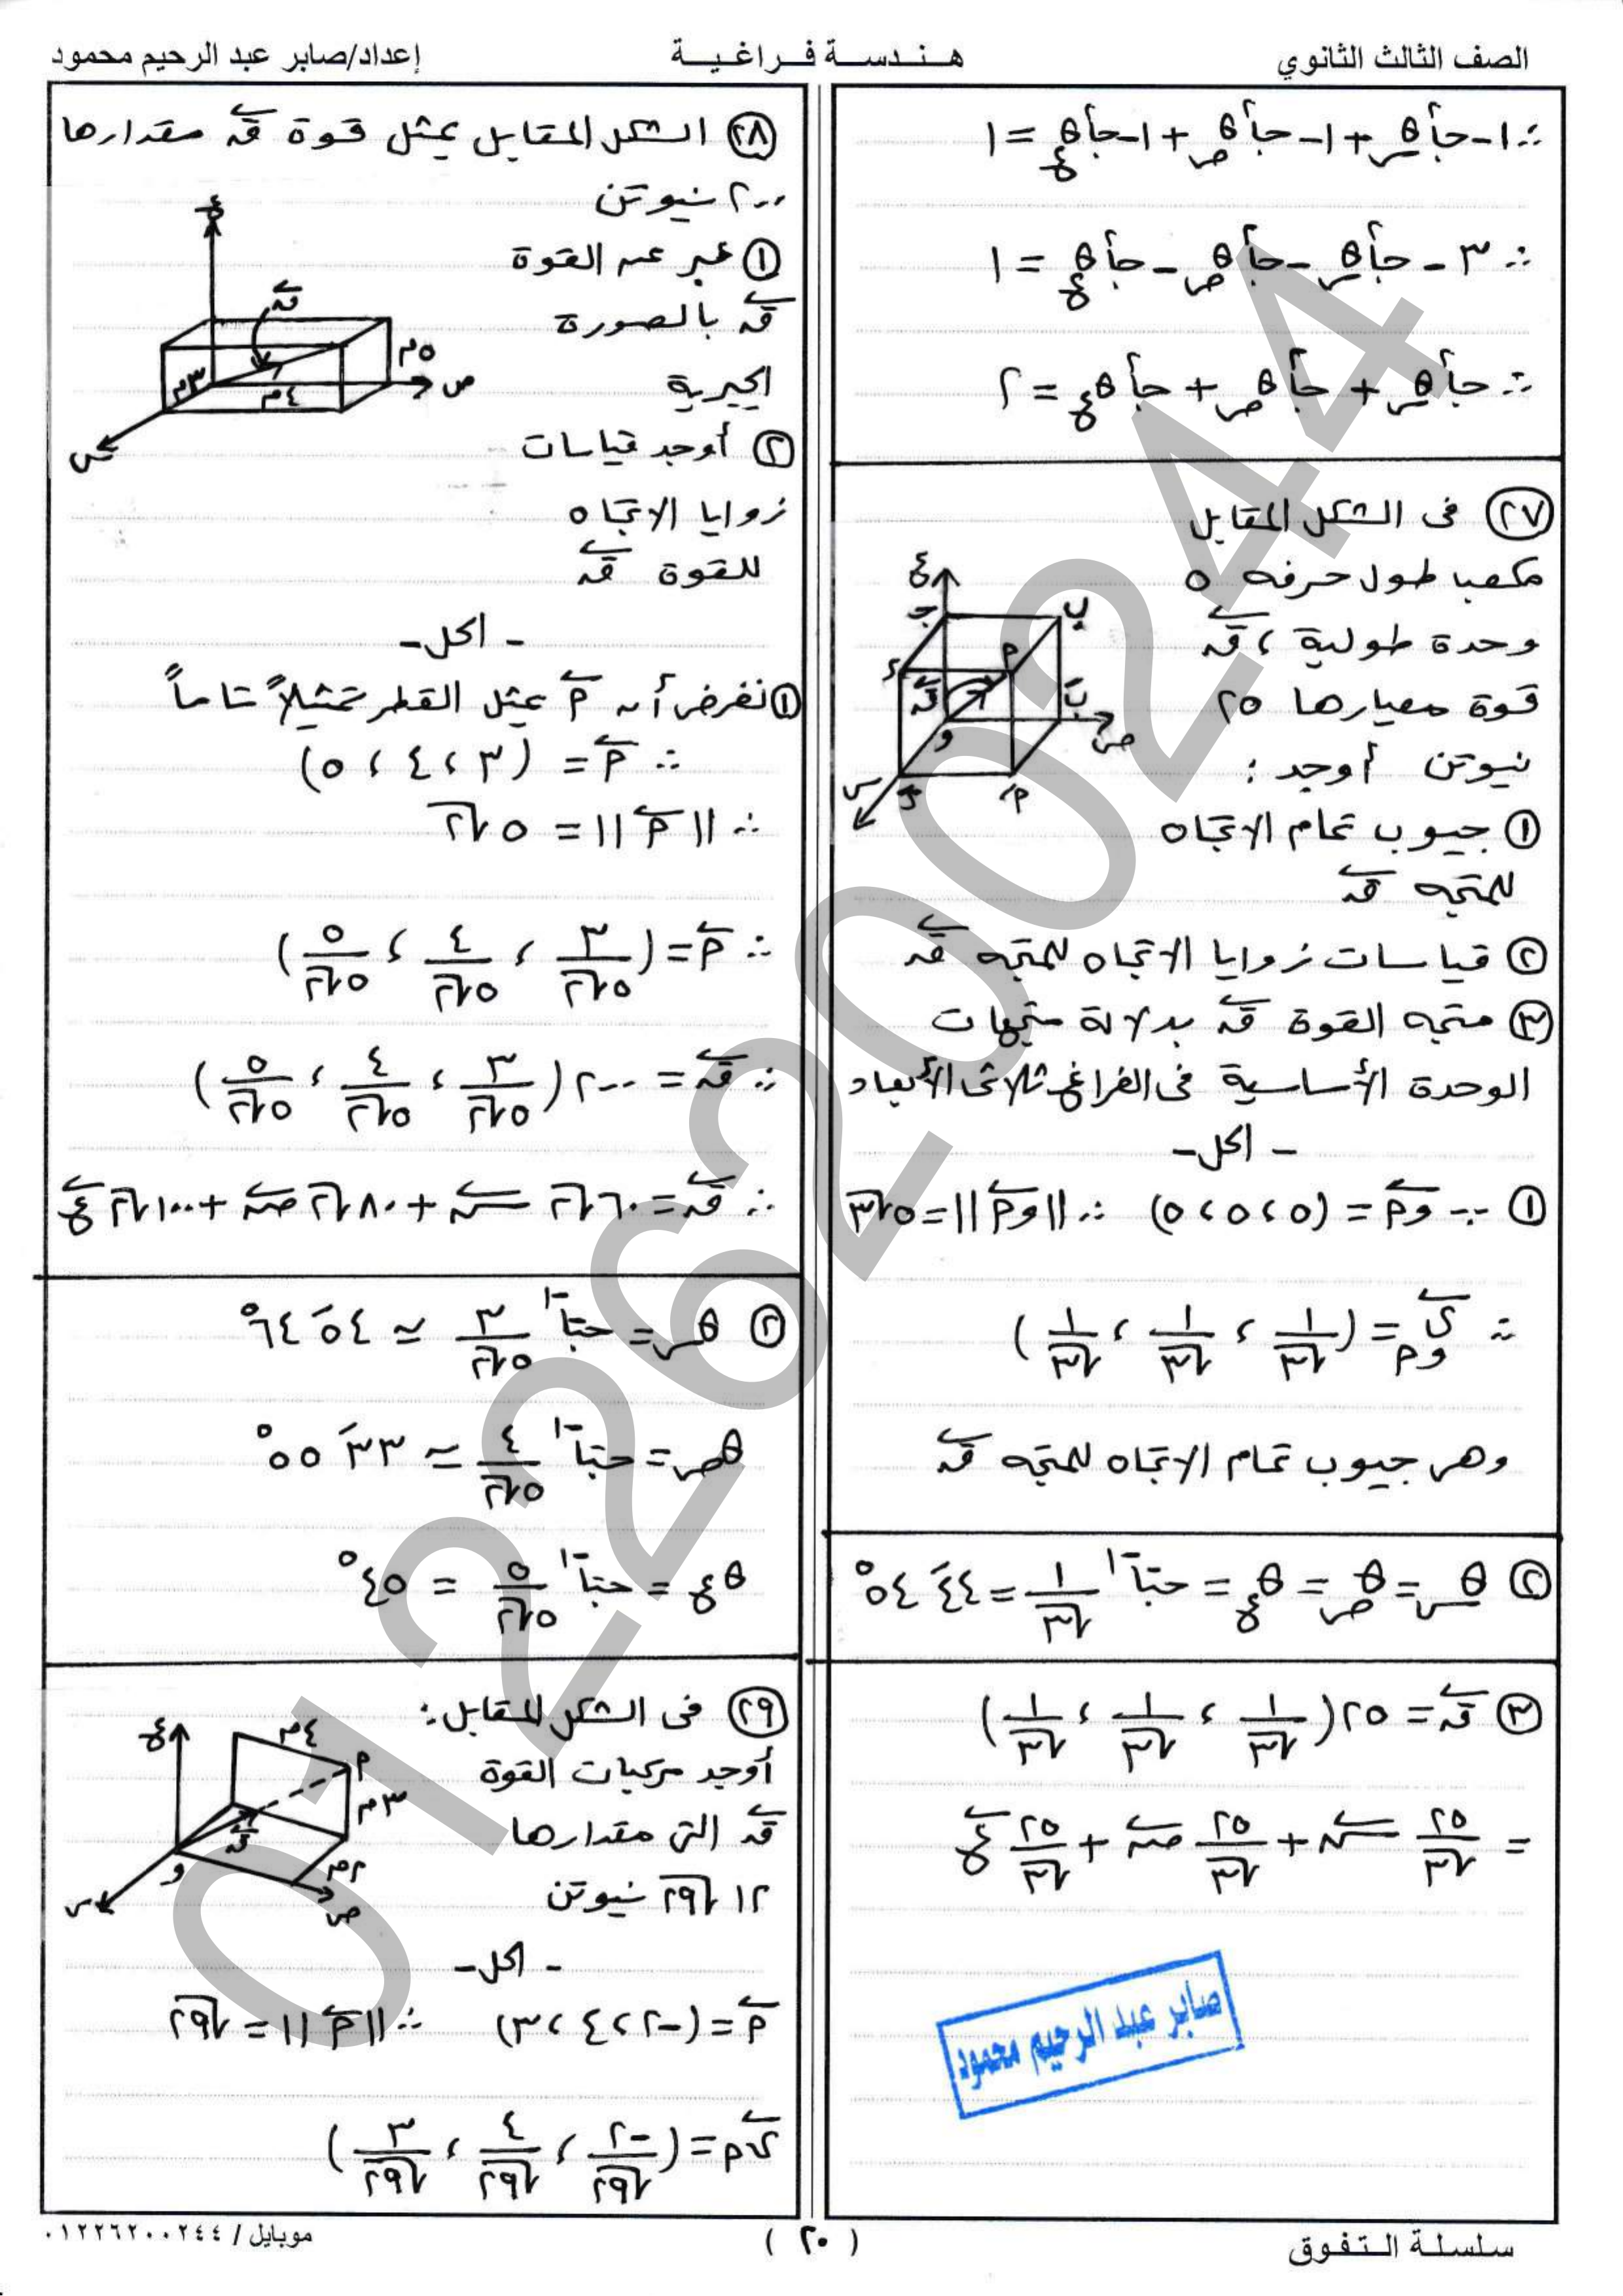 الصف الثالث الثانوي
هندسة فراغية
إعداد/صابر عبد الرحيم محمود
∴ ١ - جا٢θس + ١ - جا٢θص + ١ - جا٢θع = ١
∴ ٣ - جا٢θس - جا٢θص - جا٢θع = ١
∴ جا٢θس + جا٢θص + جا٢θع = ٢
٢٧ فى الشكل المقابل
مكعب طول حرفه ٥
وحدة طولية ، ق
قوة معيارها ٢٥
نيوتن أوجد :
ع
ج
ب
د
م
ق
بَ
و
ص
س
مَ
١ جيوب تمام الاتجاه
للمتجه ق
٢ قياسات زوايا الاتجاه للمتجه ق
٣ متجه القوة ق بدلالة متجهات
الوحدة الأساسية فى الفراغ ثلاثى الأبعاد
- الحل -
١ ∵ وم = (٥ ، ٥ ، ٥) ∴ ||وم|| = ٥√٣
∴ ى وم = (١/√٣ ، ١/√٣ ، ١/√٣)
وهى جيوب تمام الاتجاه للمتجه ق
٢ θس = θص = θع = جتا-١ ١/√٣ = ٤٤َ ٥٤°
٣ ق = ٢٥(١/√٣ ، ١/√٣ ، ١/√٣)
= ٢٥/√٣ س + ٢٥/√٣ ص + ٢٥/√٣ ع
صابر عبد الرحيم محمود
٢٨ الشكل المقابل يمثل قوة ق مقدارها
٢٠٠ نيوتن
١ عبر عن القوة
ق بالصورة
الجبرية
٢ أوجد قياسات
زوايا الاتجاه
للقوة ق
ع
ق
٥م
ص
٣م
٤م
س
- الحل -
١ نفرض أن م يمثل القطر تمثيلاً تاماً
∴ م = (٣ ، ٤ ، ٥)
∴ ||م|| = ٥√٢
∴ م = (٣/٥√٢ ، ٤/٥√٢ ، ٥/٥√٢)
∴ ق = ٢٠٠(٣/٥√٢ ، ٤/٥√٢ ، ٥/٥√٢)
∴ ق = ٦٠√٢ س + ٨٠√٢ ص + ١٠٠√٢ ع
٢ θس = جتا-١ ٣/٥√٢ ≃ ٥٤َ ٦٤°
θص = جتا-١ ٤/٥√٢ ≃ ٣٣َ ٥٥°
θع = جتا-١ ٥/٥√٢ = ٤٥°
٢٩ فى الشكل المقابل :
أوجد مركبات القوة
ق التى مقدارها
١٢√٢٩ نيوتن
ع
٤م
م
٣م
ق
و
٢م
ص
س
- الحل -
م = (-٢ ، ٤ ، ٣) ∴ ||م|| = √٢٩
ىم = (-٢/√٢٩ ، ٤/√٢٩ ، ٣/√٢٩)
سلسلة التفوق
( ٢٠ )
موبايل / ٠١٢٢٦٢٠٠٢٤٤
01226200244